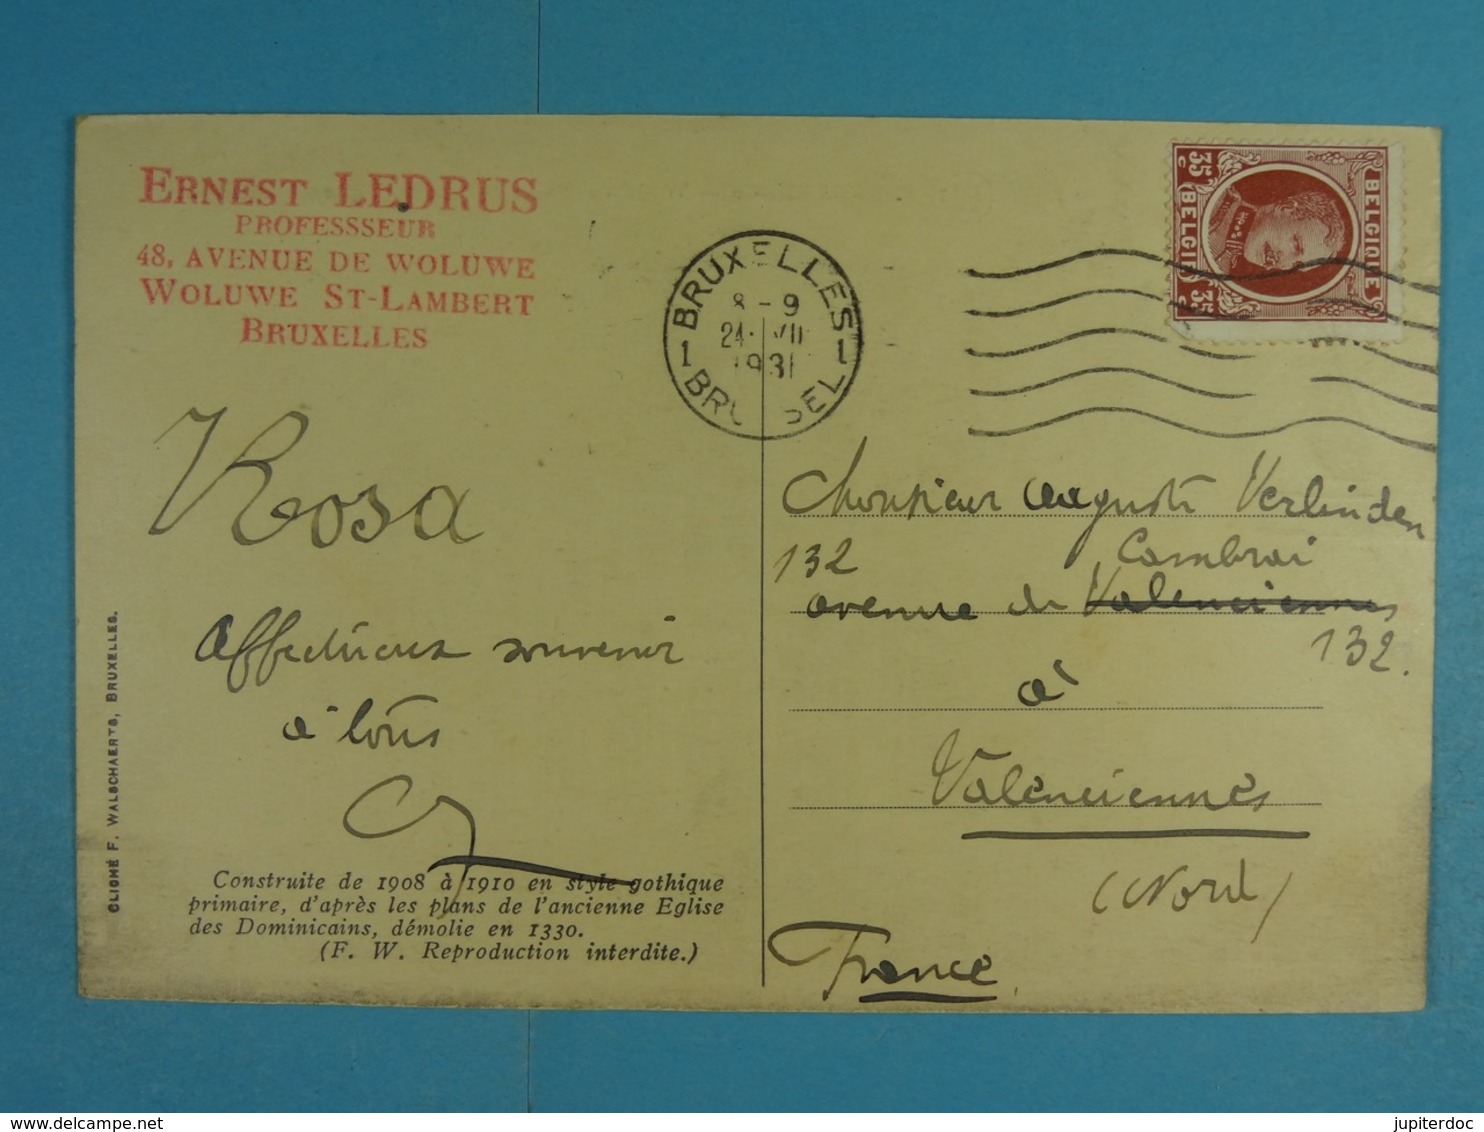 ERNEST LEDRUS
PROFESSSEUR
48, AVENUE DE WOLUWE
WOLUWE ST-LAMBERT
BRUXELLES
BRUXELLES
8 - 9
24 VII
1931
1 1
BRUSSEL
35c BELGIË 35c
BELGIQUE
Rosa
Affectueux souvenir
à tous
Monsieur Auguste Verlinden
132 Cambrai
avenue de Valenciennes
132.
à
Valenciennes
(Nord)
France
Construite de 1908 à 1910 en style gothique
primaire, d'après les plans de l'ancienne Eglise
des Dominicains, démolie en 1330.
(F. W. Reproduction interdite.)
CLICHÉ F. WALSCHAERTS, BRUXELLES.
delcampe.net
jupiterdoc